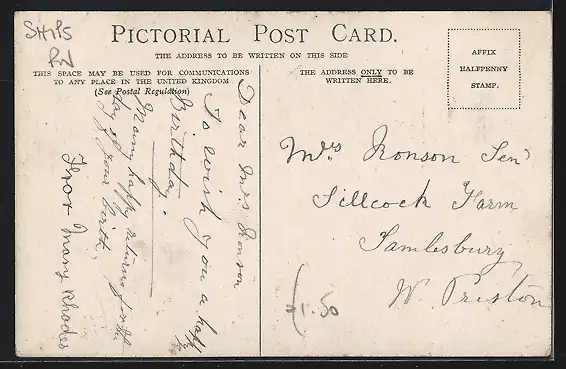 SHIPS
RN
PICTORIAL POST CARD.
THE ADDRESS TO BE WRITTEN ON THIS SIDE
THIS SPACE MAY BE USED FOR COMMUNICATIONS
TO ANY PLACE IN THE UNITED KINGDOM
(See Postal Regulation)
THE ADDRESS ONLY TO BE
WRITTEN HERE.
AFFIX
HALFPENNY
STAMP.
Dear Mrs Ronson
To wish you a happy
Birthday.
Many happy returns of the
day of your birth.
From Mary Rhodes
Mrs Ronson Senr
Sillcock Farm
Samlesbury
Nr Preston
1.50